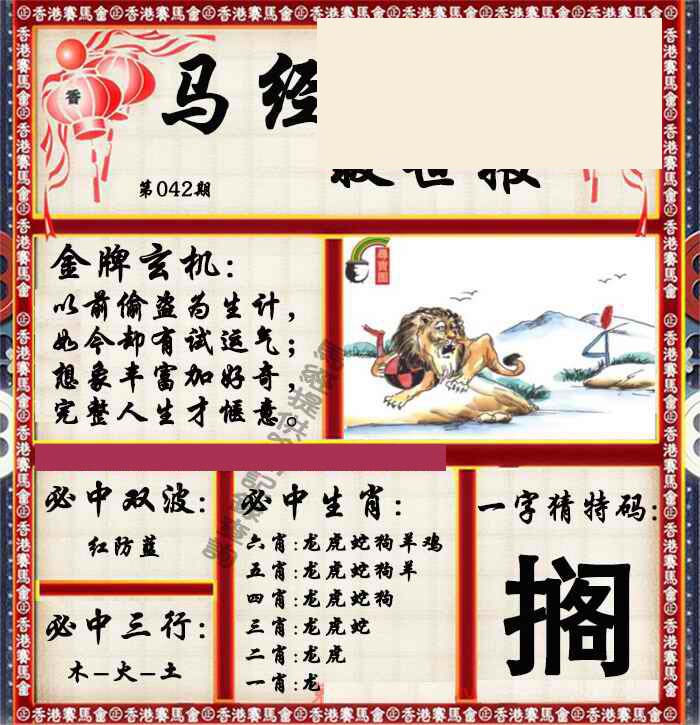 香港赛馬會
香
马经
救世报
第042期
金牌玄机:
以前偷盗为生计,
如今却有试运气;
想象丰富加好奇,
完整人生才惬意。
尋寶圖
必中双波:
红防蓝
必中三行:
木-火-土
必中生肖:
六肖:龙虎蛇狗羊鸡
五肖:龙虎蛇狗羊
四肖:龙虎蛇狗
三肖:龙虎蛇
二肖:龙虎
一肖:龙
一字猜特码:
搁